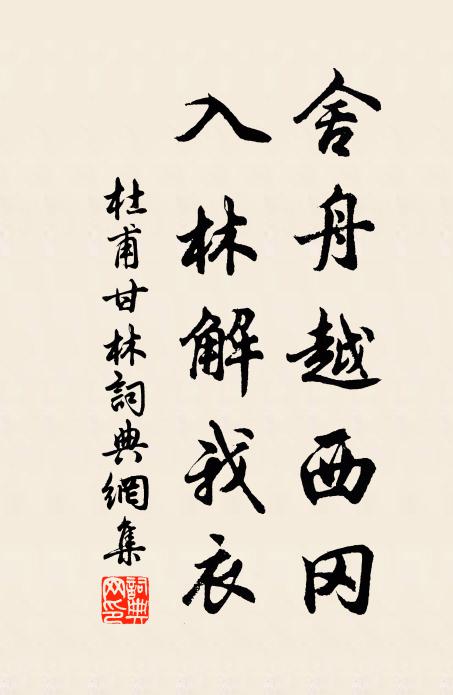 舍舟越西冈
入林解我衣
杜甫甘林詞典網集
詞典网印